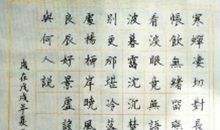 寒蟬凄切對長
帳飲無緒留戀
看淚眼竟無語
波暮靄沉沉楚
別更那堪冷落
處楊柳岸曉風
良辰好景虛設
與何人說
歲在戊戌年夏